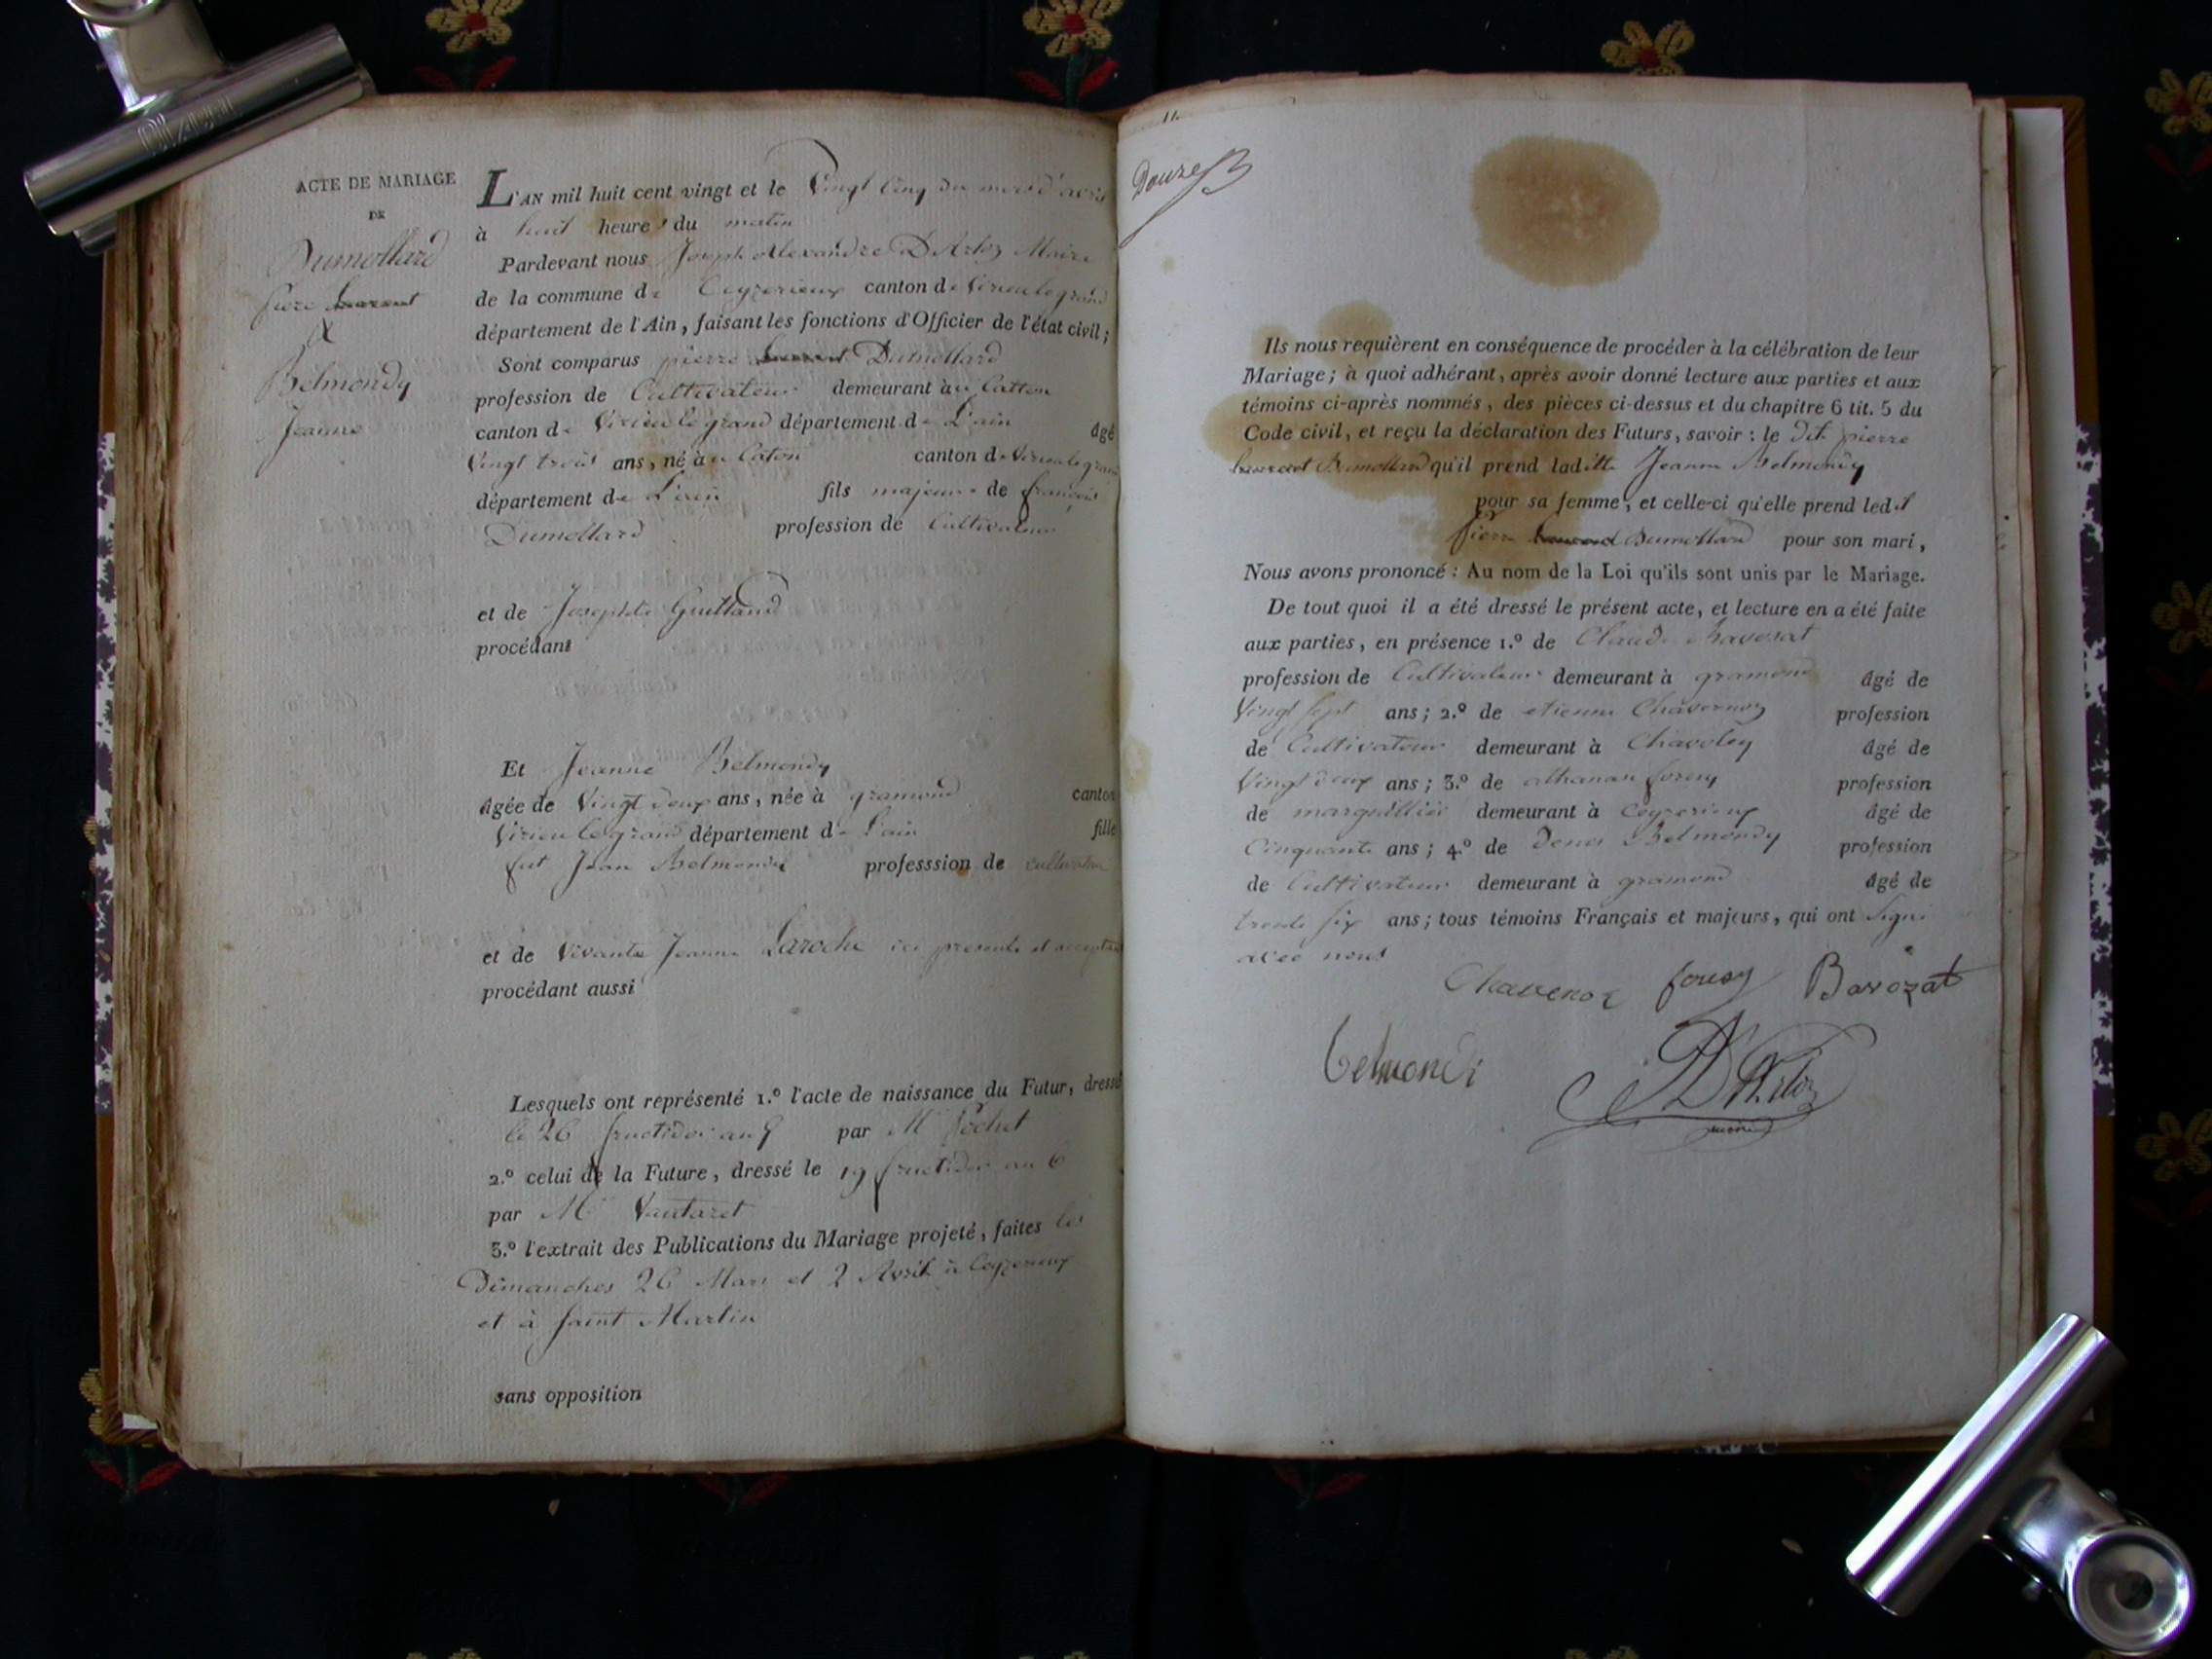 ACTE DE MARIAGE
DE
Dumollard
&
Belmondy
Jeanne
L'AN mil huit cent vingt et le Vingt Cinq du mois d'avril
à huit heures du matin
Pardevant nous Joseph Alexandre D'Arloz Maire
de la commune de Ceyzerieux canton de Virieu le grand
département de l'Ain, faisant les fonctions d'Officier de l'état civil;
Sont comparus pierre Dumollard
profession de Cultivateur demeurant à Catton
canton de Virieu le grand département de L'ain âgé
Vingt trois ans, né à Caton canton de Virieu le grand
département de L'ain fils majeur de françois
Dumollard profession de Cultivateur
et de Josephte Guilland
procédant
Et Jeanne Belmondy
âgée de Vingt deux ans, née à gramond canton
Virieu le grand département de L'ain fille
fut Jean Belmondy professsion de cultivateur
et de Vivante Jeanne Laroche ici presente et acceptant
procédant aussi
Lesquels ont représenté 1.º l'acte de naissance du Futur, dressé
le 26 fructidor an par Mr
2.º celui de la Future, dressé le 19 fructidor an 6
par Mr Vautaret
3.º l'extrait des Publications du Mariage projeté, faites les
Dimanches 26 Mars et 2 Avril à Ceyzerieux
et à Saint Martin
sans opposition
11.
Douze
Ils nous requièrent en conséquence de procéder à la célébration de leur
Mariage; à quoi adhérant, après avoir donné lecture aux parties et aux
témoins ci-après nommés, des pièces ci-dessus et du chapitre 6 tit. 5 du
Code civil, et reçu la déclaration des Futurs, savoir: le dit pierre
Dumollard qu'il prend laditte Jeanne Belmondy
pour sa femme, et celle-ci qu'elle prend ledit
pierre Dumollard pour son mari,
Nous avons prononcé: Au nom de la Loi qu'ils sont unis par le Mariage.
De tout quoi il a été dressé le présent acte, et lecture en a été faite
aux parties, en présence 1.º de Claude
profession de Cultivateur demeurant à gramond âgé de
Vingt sept ans; 2.º de etienne Chavernoz profession
de Cultivateur demeurant à Chavoley âgé de
Vingt deux ans; 3.º de profession
de marguillier demeurant à Ceyzerieux âgé de
Cinquante ans; 4.º de Denis Belmondy profession
de Cultivateur demeurant à gramond âgé de
trente six ans; tous témoins Français et majeurs, qui ont Signé
avec nous
Chavernoz Barozat
belmondi
D'Arloz
maire